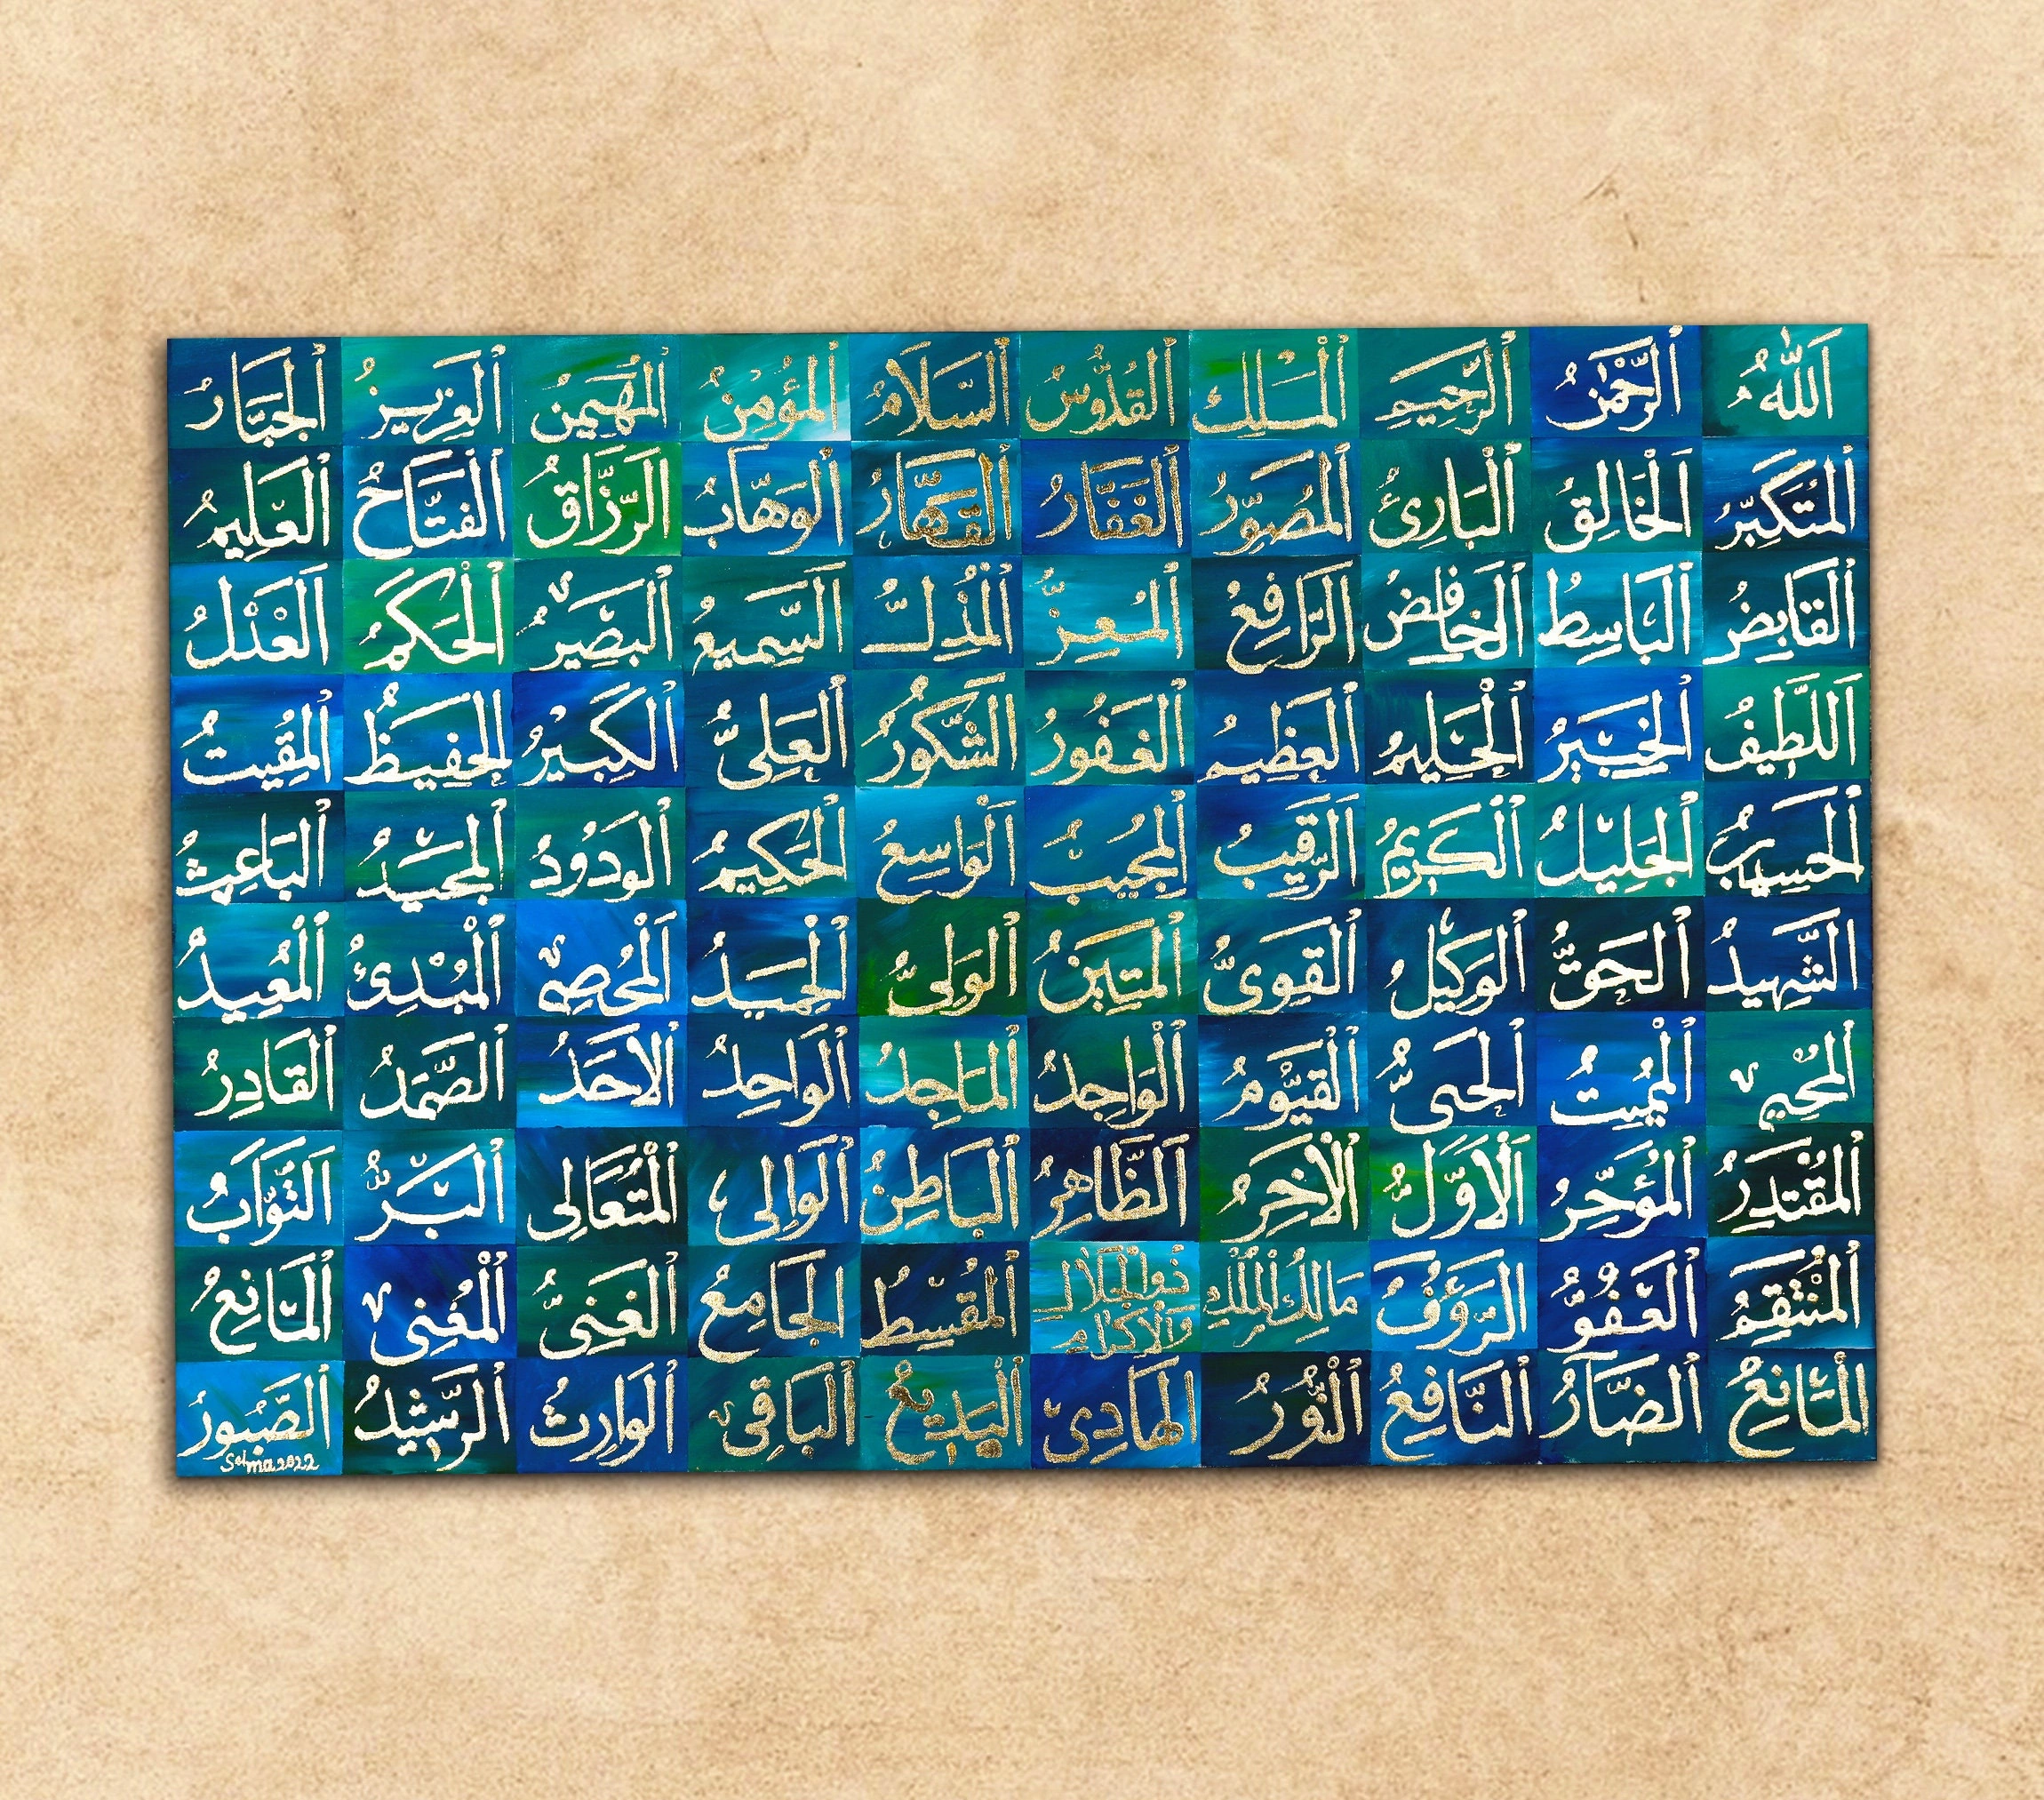 اَللّٰهُ ٱلرَّحْمٰنُ ٱلرَّحِيمُ ٱلْمَلِكُ ٱلقُدُّوسُ ٱلسَّلَامُ ٱلمُؤْمِنُ ٱلْمُهَيمِنُ ٱلعَزِيزُ ٱلجَبَّارُ
ٱلمُتَكَبِّرُ اَلْخَالِقُ ٱلْبَارِئُ ٱلمُصَوِّرُ ٱلْغَفَّارُ ٱلقَهَّارُ ٱلوَهَّابُ اَلرَّزَّاقُ ٱلْفتَّاحُ ٱلعَلِيمُ
ٱلقَابِضُ ٱلبَاسِطُ ٱلخَافِضُ اَلرَّافِعُ ٱلمُعِزُّ ٱلْمُذِلُّ اَلسَّمِيعُ ٱلبَصِيرُ ٱلْحَكَمُ اَلعَدْلُ
اَللَّطِيفُ ٱلْخَبِيرُ ٱلْحَلِيمُ ٱلعَظِيمُ ٱلغَفُورُ ٱلشَّكُورُ ٱلعَلِىُّ ٱلكَبِيْرُ ٱلحَفِيظُ ٱلمُقِيتُ
ٱلحَسِيبُ ٱلجَلِيلُ ٱلْكَرِيمُ اَلرَّقِيبُ ٱلمُجِيبُ اَلْوَاسِعُ ٱلْحَكِيمُ ٱلوَدُودُ ٱلمَجِيدُ ٱلبَاعِثُ
ٱلشَّهِيدُ ٱلحَقُّ ٱلوَكِيلُ ٱلقَوِىُّ ٱلْمَتِينُ ٱلوَلِىُّ ٱلْحَمِيدُ اَلْمُحْصِى ٱلْمُبْدِئُ ٱلْمُعِيدُ
ٱلمُحْيِى ٱلْمُمِيتُ ٱلْحَىُّ ٱلْقَيُّومُ ٱلْوَاجِدُ ٱلمَاجِدُ ٱلوَاحِدُ ٱلاَحَدُ ٱلصَّمَدُ ٱلقَادِرُ
ٱلمُقْتَدِرُ ٱلمُؤَخِّرُ اَلْاَوَّلُ ٱلْاٰخِرُ اَلظَّاهِرُ ٱلْبَاطِنُ ٱلوَالِى ٱلْمُتَعَالِى ٱلبَرُّ اَلتَّوَّابُ
ٱلْمُنْتَقِمُ ٱلعَفُوُّ ٱلرَّؤُفُ مَالِكُ ٱلْمُلْكِ ذُوالْجَلَالِ وَالْاِكْرَامِ ٱلْمُقْسِطُ ٱلجَامِعُ ٱلغَنِىُّ ٱلْمُغْنِى ٱلْمَانِعُ
ٱلْمَانِعُ ٱلضَّارُّ ٱلنَّافِعُ ٱلْنُّورُ ٱلهَادِى ٱلبَدِيعُ ٱلبَاقِى ٱلوَارِثُ ٱلرَّشِيدُ ٱلصَّبُورُ
Selma 2022